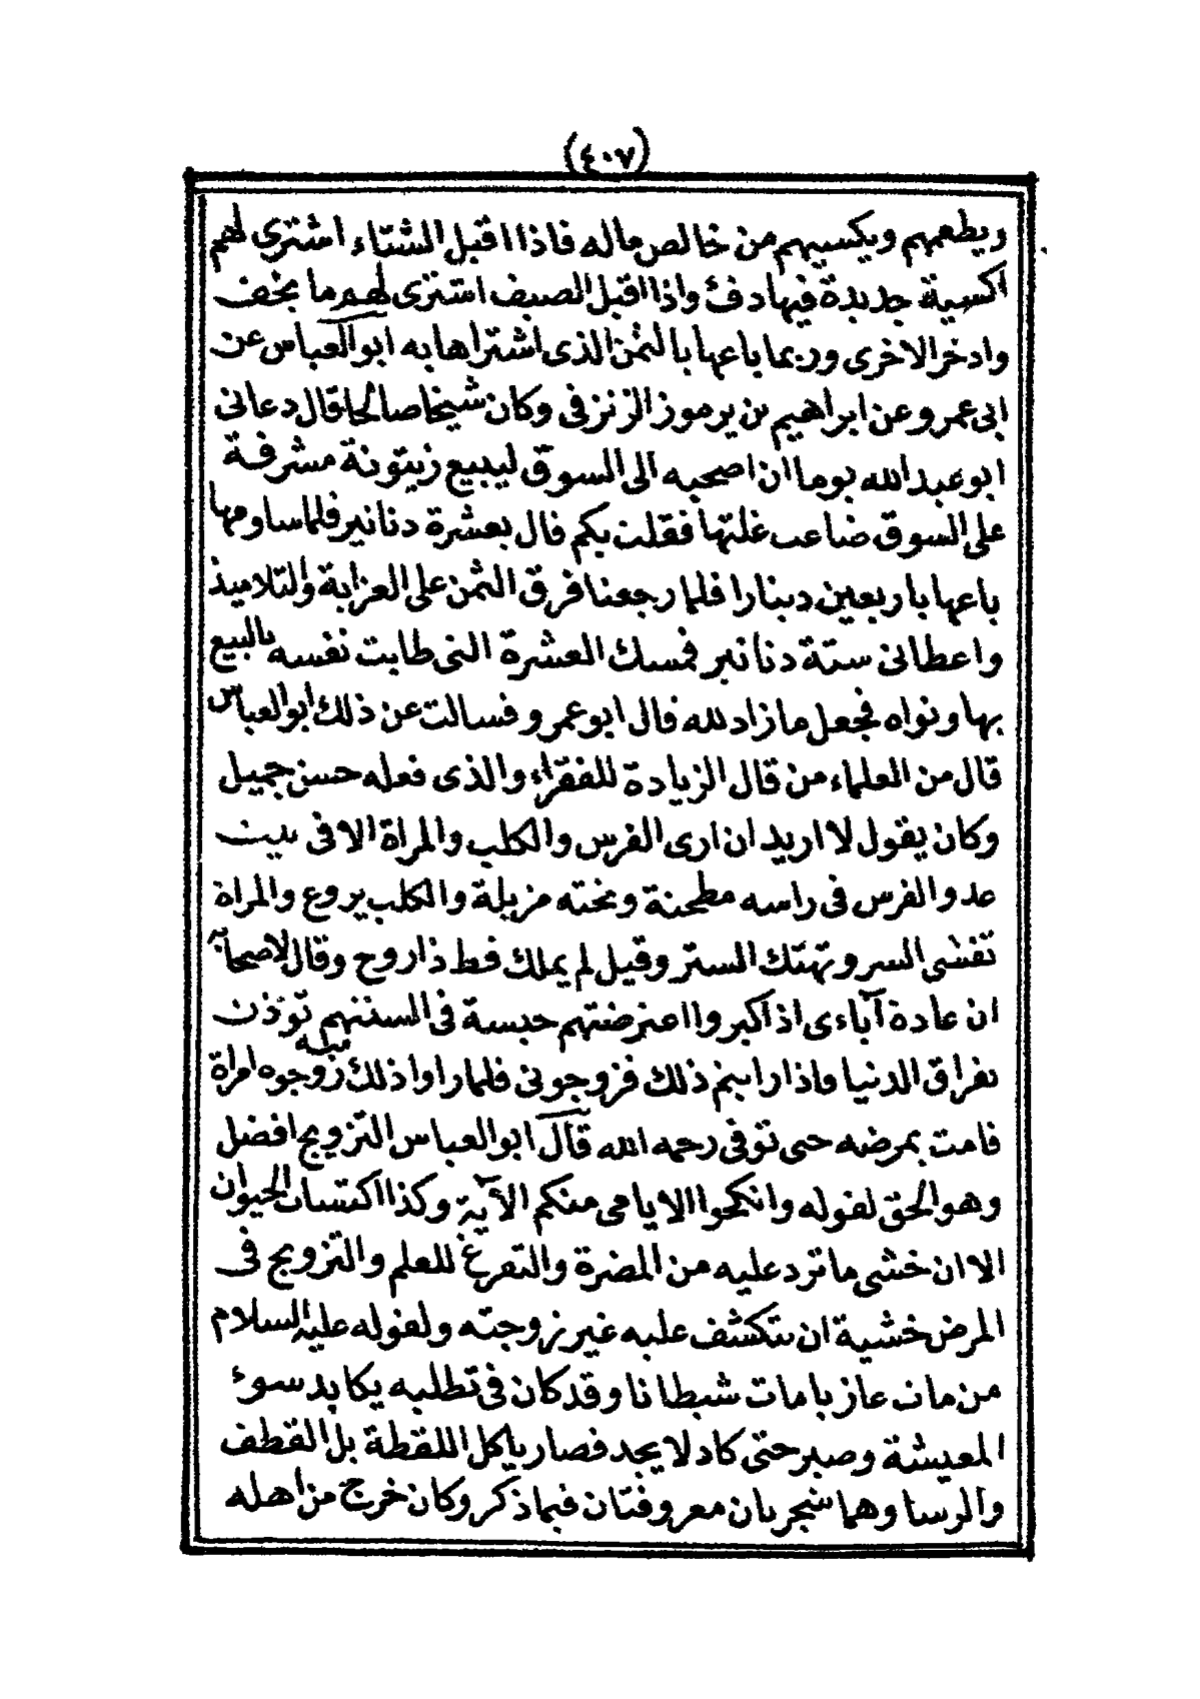 (٤٠٧)
ويطعمهم ويكسيهم من خالص ماله فاذا اقبل الشتاء اشترى لهم
اكسية جديدة فيها دفئ واذا اقبل الصيف اشترى لهم ما يخفف
وادخر الاخرى وربما باعها بالثمن الذى اشتراها به ابو العباس عن
ابى عمرو عن ابراهيم بن يرموز الزنزفى وكان شيخا صالحا قال دعانى
ابو عبد الله يوما ان اصحبه الى السوق ليبيع زيتونة مشرفة
على السوق ضاعب غلتها فقلت بكم قال بعشرة دنانير فلما ساومها
باعها باربعين دينارا فلما رجعنا فرق الثمن على العزابة والتلاميذ
واعطانى ستة دنانير فمسك العشرة التى طابت نفسه بالبيع
بها ونواه فجعل ما زاد لله قال ابو عمرو فسالت عن ذلك ابو العباس
قال من العلماء من قال الزيادة للفقراء والذى فعله حسن جميل
وكان يقول لا اريد ان ارى الفرس والكلب والمراة الا فى بيت
عدو الفرس فى راسه مطحنة وتحته مزبلة والكلب يروع والمراة
تفشى السر وتهتك الستر وقيل لم يملك قط ذا روح وقال لاصحابه
ان عادة آباءى اذ اكبروا اعترضتهم حبسة فى السنتهم توذن
بفراق الدنيا فاذا رايتم ذلك فزوجونى فلما راوا ذلك زوجوه امراة
قامت بمرضه حتى توفى رحمه الله قال ابو العباس التزويج افضل
وهو الحق لقوله وانكحوا الايامى منكم الآية وكذا اكتساب الحيوان
الا ان خشى ما ترد عليه من المضرة والتفرغ للعلم والتزويج فى
المرض خشية ان يتكشف عليه غير زوجته ولقوله عليه السلام
من مات عازبا مات شيطانا وقد كان فى تطلبه يكابد سوء
المعيشة وصبر حتى كاد لا يجد فصار ياكل اللقطة بل القطف
والرسا وهما شجرتان معروفتان فيما ذكر وكان خرج من اهله